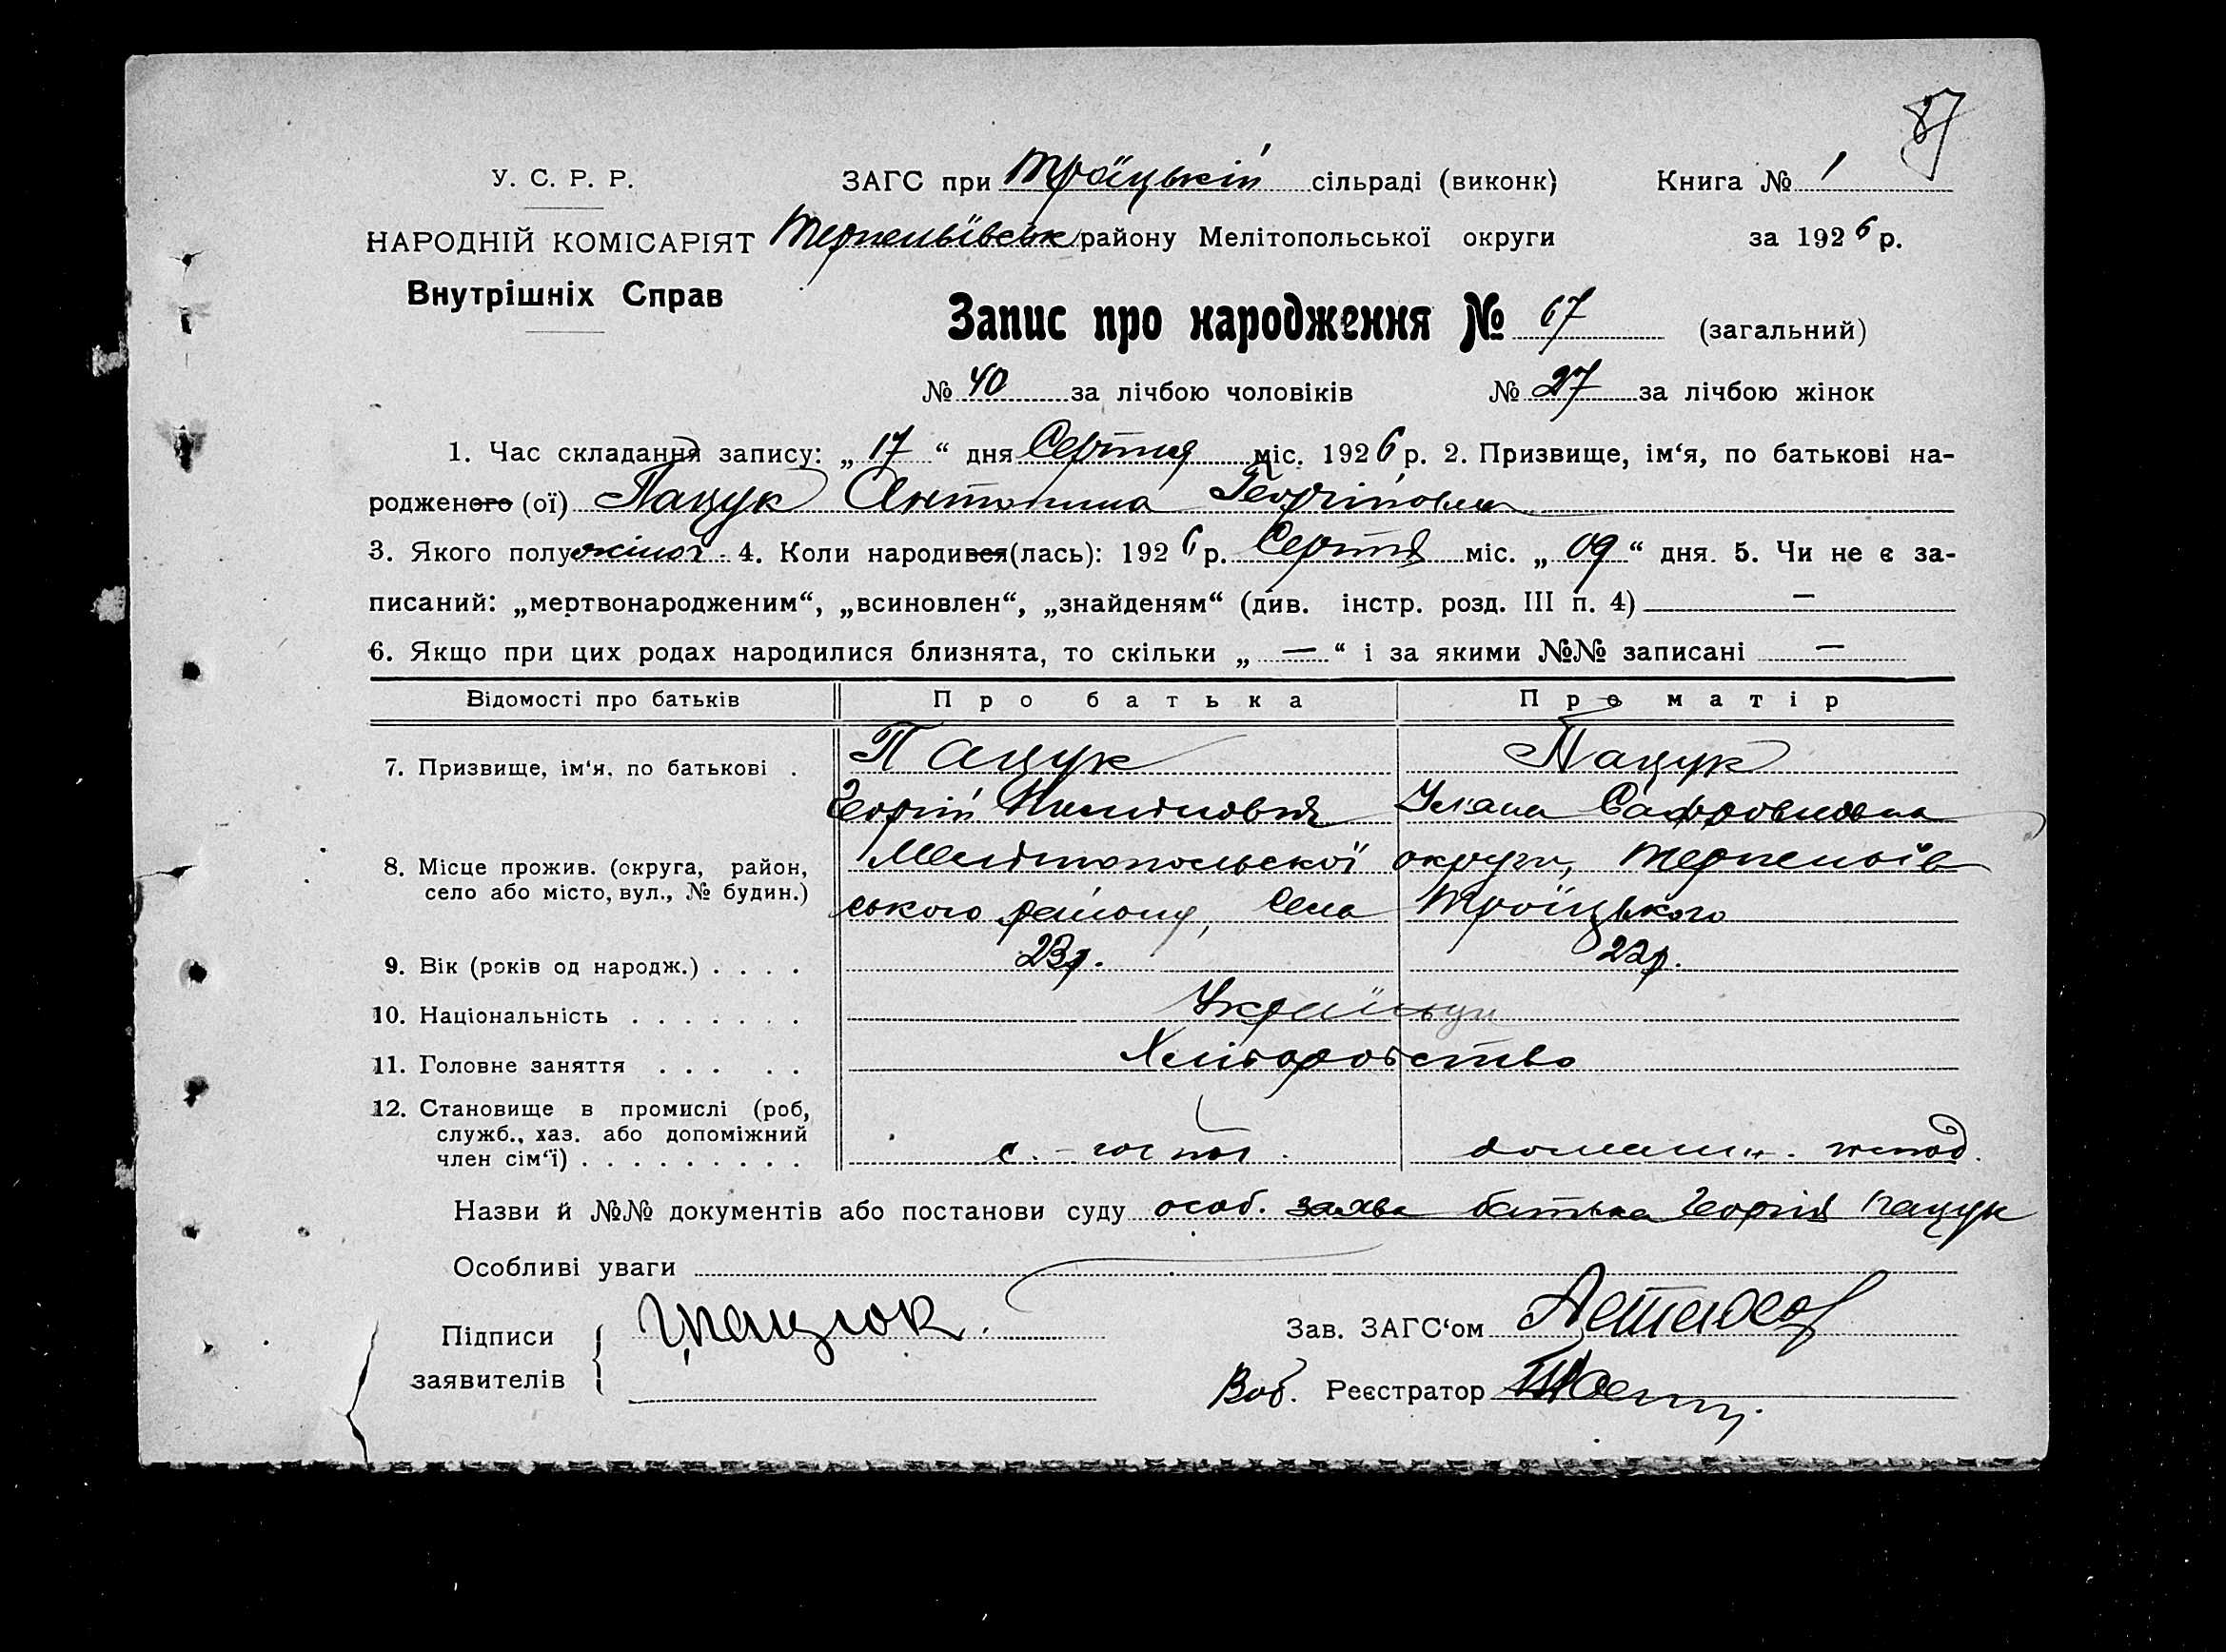 87
У. С. Р. Р. ЗАГС при Троїцькій сільраді (виконк) Книга № 1
НАРОДНІЙ КОМІСАРІЯТ Терпеньївськ району Мелітопольської округи за 1926 р.
Внутрішніх Справ
Запис про народження № 67 (загальний)
№ 40 за лічбою чоловіків № 27 за лічбою жінок
1. Час складання запису: „ 17 “ дня Серпня міс. 1926 р. 2. Призвище, ім‘я, по батькові на-
родженого (ої) Пацук Антонина Георгіовна
3. Якого полу жіноч. 4. Коли народився(лась): 1926 р. Серпня міс. „ 09 “ дня. 5. Чи не є за-
писаний: „мертвонародженим“, „всиновлен“, „знайденям“ (див. інстр. розд. III п. 4) —
6. Якщо при цих родах народилися близнята, то скільки „ — “ і за якими №№ записані —
Відомості про батьків Про батька Про матір
7. Призвище, ім‘я, по батькові . Пацук Пацук
Георгій Уляна
8. Місце прожив. (округа, район, Мелітопольської округи, Терпеньїв
село або місто, вул., № будин.) ського району, села Троїцького
9. Вік (років од народж.) . . . . 23 р. 22 р.
10. Національність . . . . . . . Українці
11. Головне заняття . . . . . Хліборобство
12. Становище в промислі (роб,
служб., хаз. або допоміжний
член сім‘ї) . . . . . . . . . с. - домашн.
Назви й №№ документів або постанови суду особ. заява батька Георгія Пацук
Особливі уваги
Підписи Зав. ЗАГС‘ом
заявителів Реєстратор